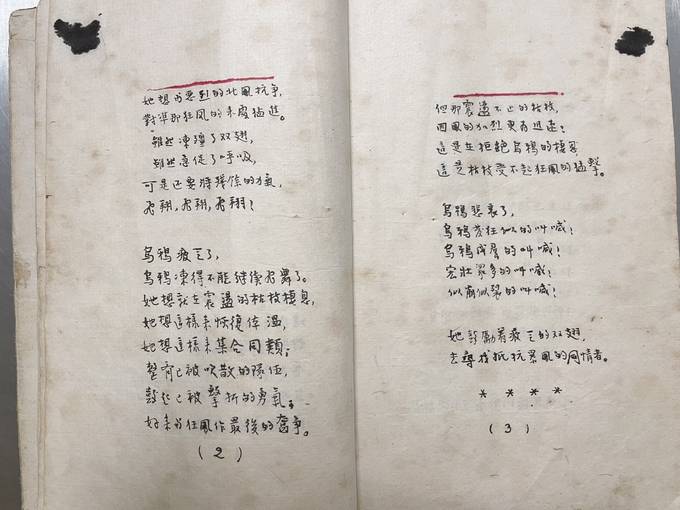 她想与恶烈的北風抗争,
對準那狂風的来處猛進。
雖然凍殭了双翅,
雖然急促了呼吸,
可是还要將殘餘的力氣,
飛翔,飛翔,飛翔!
烏鴉疲乏了,
烏鴉凍得不能継续飛舞了。
她想就在震盪的枯枝棲息,
她想這樣来恢復体温,
她想這樣来集合同類;
整有已被吹散的隊伍,
鼓起已被擊折的勇氣,
好来与狂風作最後的奮争。
(2)
但那震盪不止的枯枝,
因風的加烈更有迅速!
這是在拒絕烏鴉的棲息
這是枯枝受不起狂風的猛擊。
烏鴉悲哀了,
烏鴉發狂似的叫喊!
烏鴉成屠的叫喊!
宏壯眾多的叫喊!
似崩似裂的叫喊!
她鼓勵着疲乏的双翅,
去尋找抵抗暴風的同情者。
* * * *
(3)